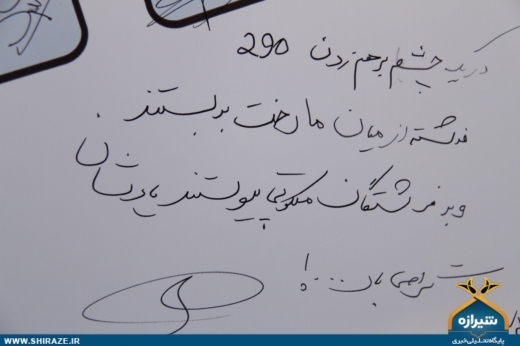 در یک چشم بر هم زدن 290
فرشته از میان ما رخت بر بستند .
و بر فرشتگان ملکوتی پیوستند یادشان
گرامی باد ...!
شیرازه
پایگاه تحلیلی خبری
WWW.SHIRAZE.IR
WWW.SHIRAZE.IR